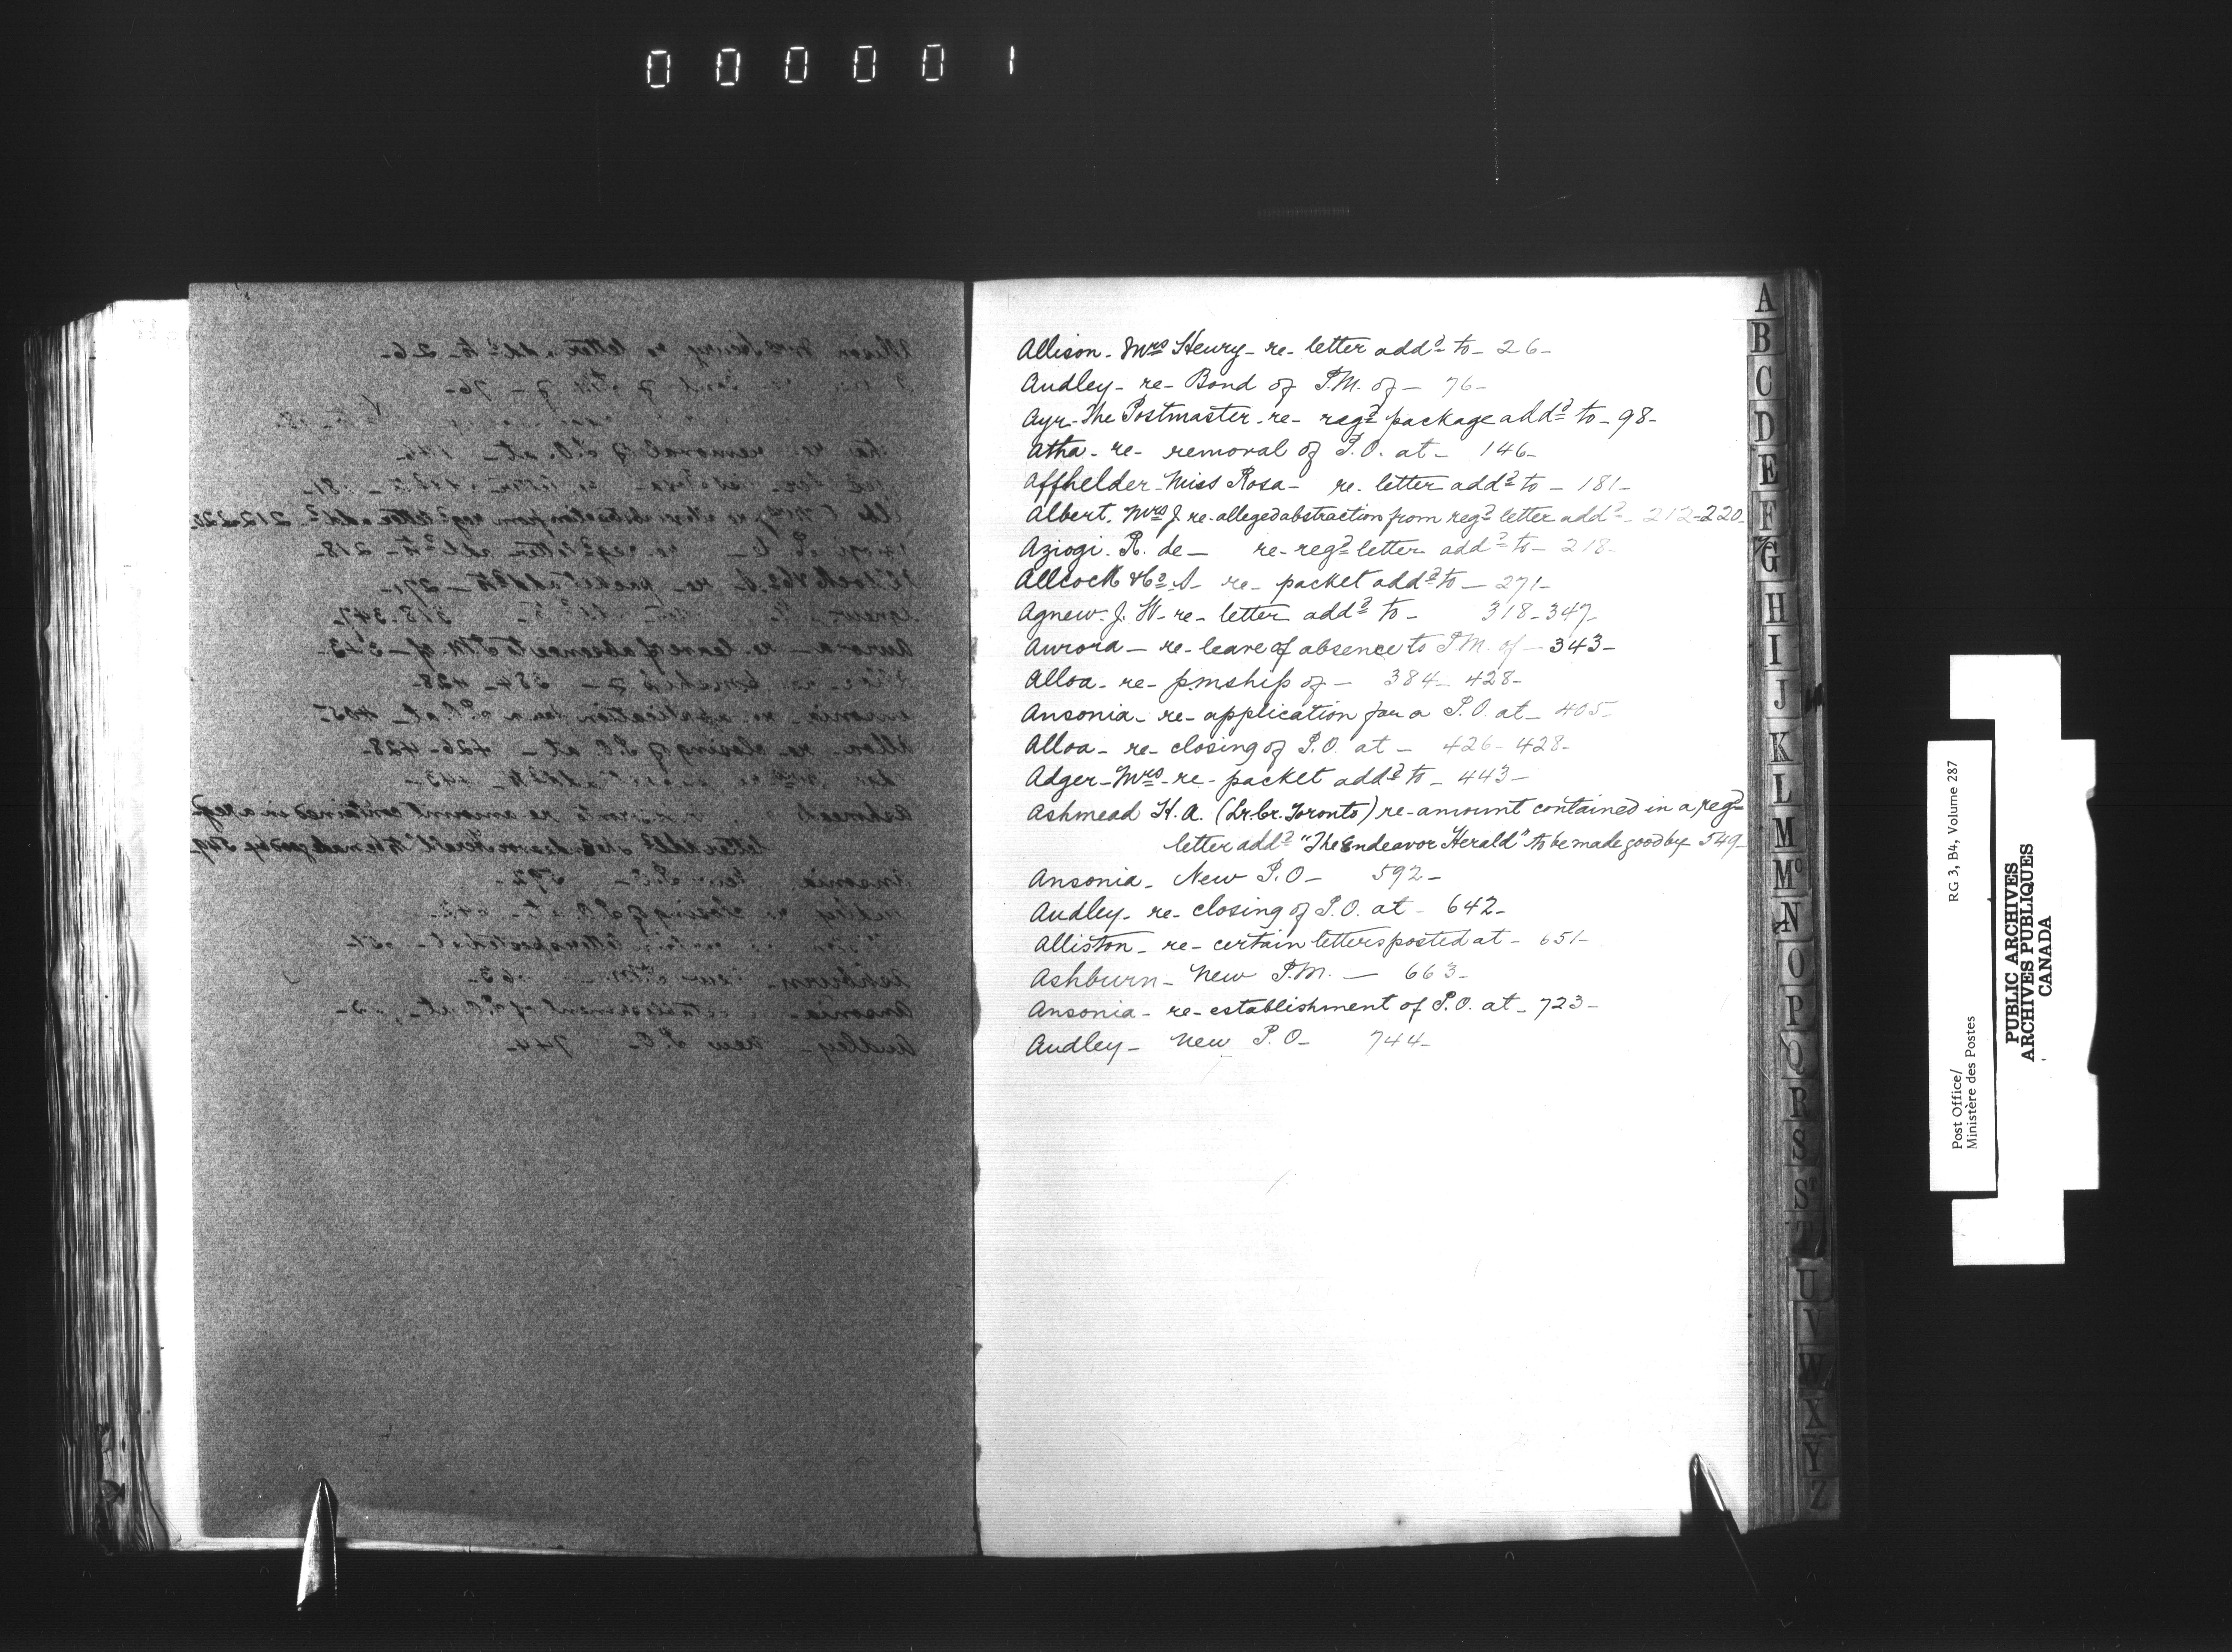 000001
Allison - Mrs Henry - re - letter addd to - 26 -
Audley - re - Bond of P.M. of - 76 -
Ayr - The Postmaster - re - regd package addd to - 98 -
Atha - re - removal of P.O. at - 146 -
Affhelder - Miss Rosa - re - letter addd to - 181 -
Albert. Mrs J re - alleged abstraction from regd letter addd - 212 - 220 -
Aziogi. R. de - re - regd letter addd to - 218 -
Allcock & Co. A - re - packet addd to - 271 -
Agnew - J. W - re - letter addd to - 318 - 347 -
Aurora - re - leave of absence to P.M. of - 343 -
Alloa - re - pmship of - 384 - 428 -
Ansonia - re - application for a P.O. at - 405 -
Alloa - re - closing of P.O. at - 426 - 428 -
Adger - Mrs - re - packet addd to - 443 -
Ashmead H. A. (Lr. Cr. Toronto) re - amount contained in a regd
letter addd "The Endeavor Herald" to be made good by 549 -
Ansonia - New P.O - 592 -
Audley - re - closing of P.O. at - 642 -
Alliston - re - certain letters posted at - 651 -
Ashburn - New P.M. - 663 -
Ansonia - re - establishment of P.O. at - 723 -
Audley - New P.O - 744 -
A
B
C
D
E
F
G
H
I
J
K
L
M
Mc
N
O
P
Q
R
S
St
T
U
V
W
X
Y
Z
Post Office/
Ministère des Postes
RG 3, B4, Volume 287
PUBLIC ARCHIVES
ARCHIVES PUBLIQUES
CANADA